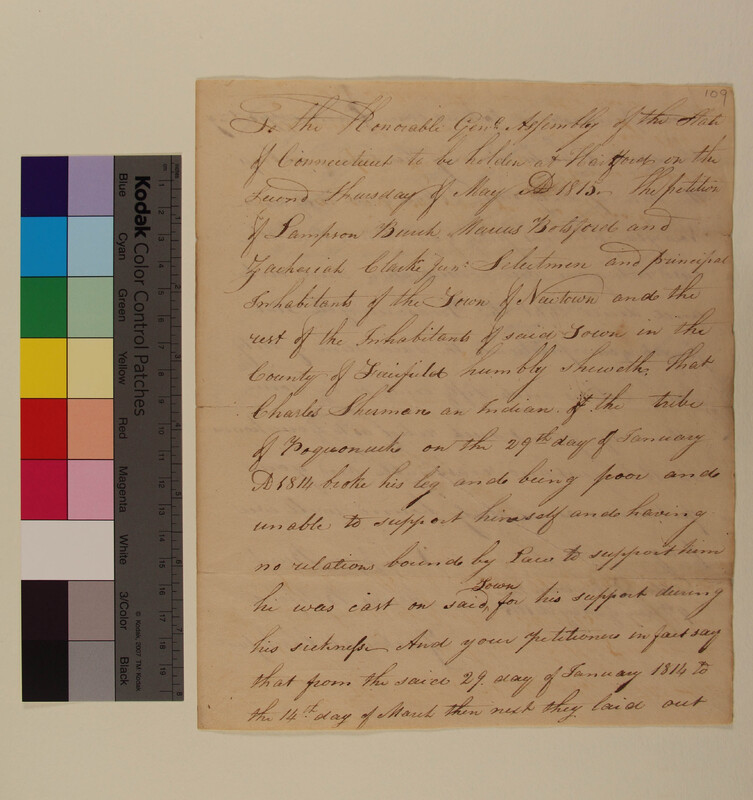 109
To the Honorable Genl. Assembly of the State
of Connecticut to be holden at Hartford on the
second Thursday of May AD 1815. The petition
of Lampson Burch Marcus Botsford and
Zachariah Clarke Junr. Selectmen and principal
Inhabitants of the Town of Newtown and the
rest of the Inhabitants of said Town in the
County of Fairfield humbly sheweth, that
Charles Sherman an Indian of the tribe
of on the 29th day of January
AD 1814 broke his leg and being poor and
unable to support himself and having
no relations bound by Law to support him
he was cast on said Town for his support during
his sickness And your Petitioners in fact say
that from the said 29 day of January 1814 to
the 14th day of March then next they laid out
Kodak Color Control Patches
Blue
Cyan
Green
Yellow
Red
Magenta
White
3/Color
Black
© Kodak, 2007 TM: Kodak
1
2
3
4
5
6
7
8
9
10
11
12
13
14
15
16
17
18
19